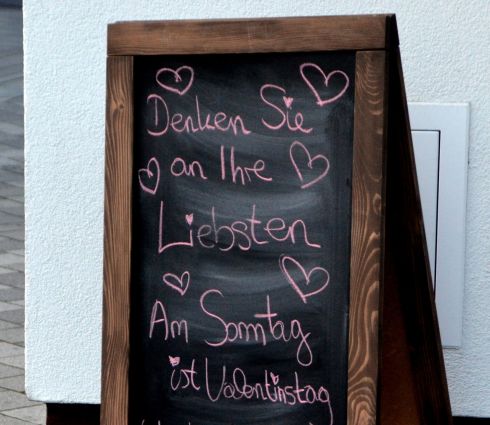 Denken Sie
an Ihre
Liebsten
Am Sonntag
ist Valentinstag